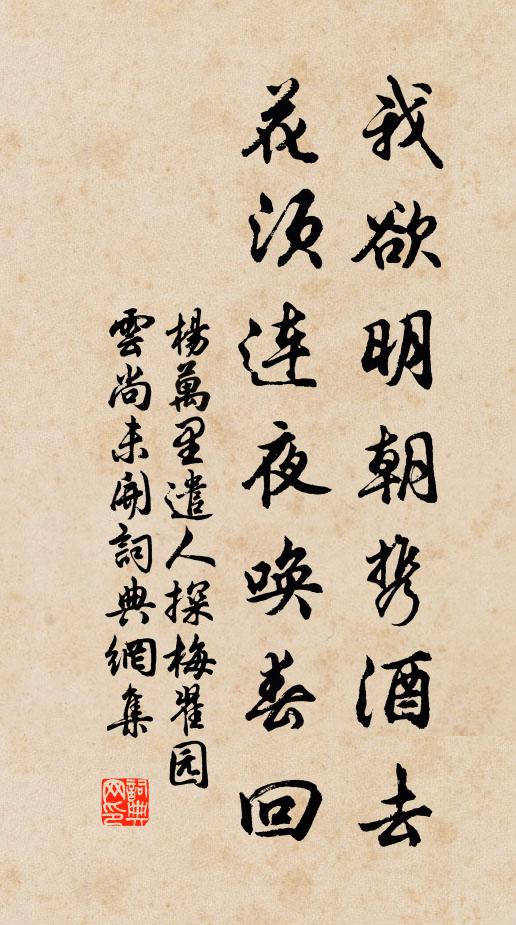 我欲明朝携酒去
花须连夜唤春回
楊萬里遣人探梅翟园
雲尚未開詞典網集
詞典
网印